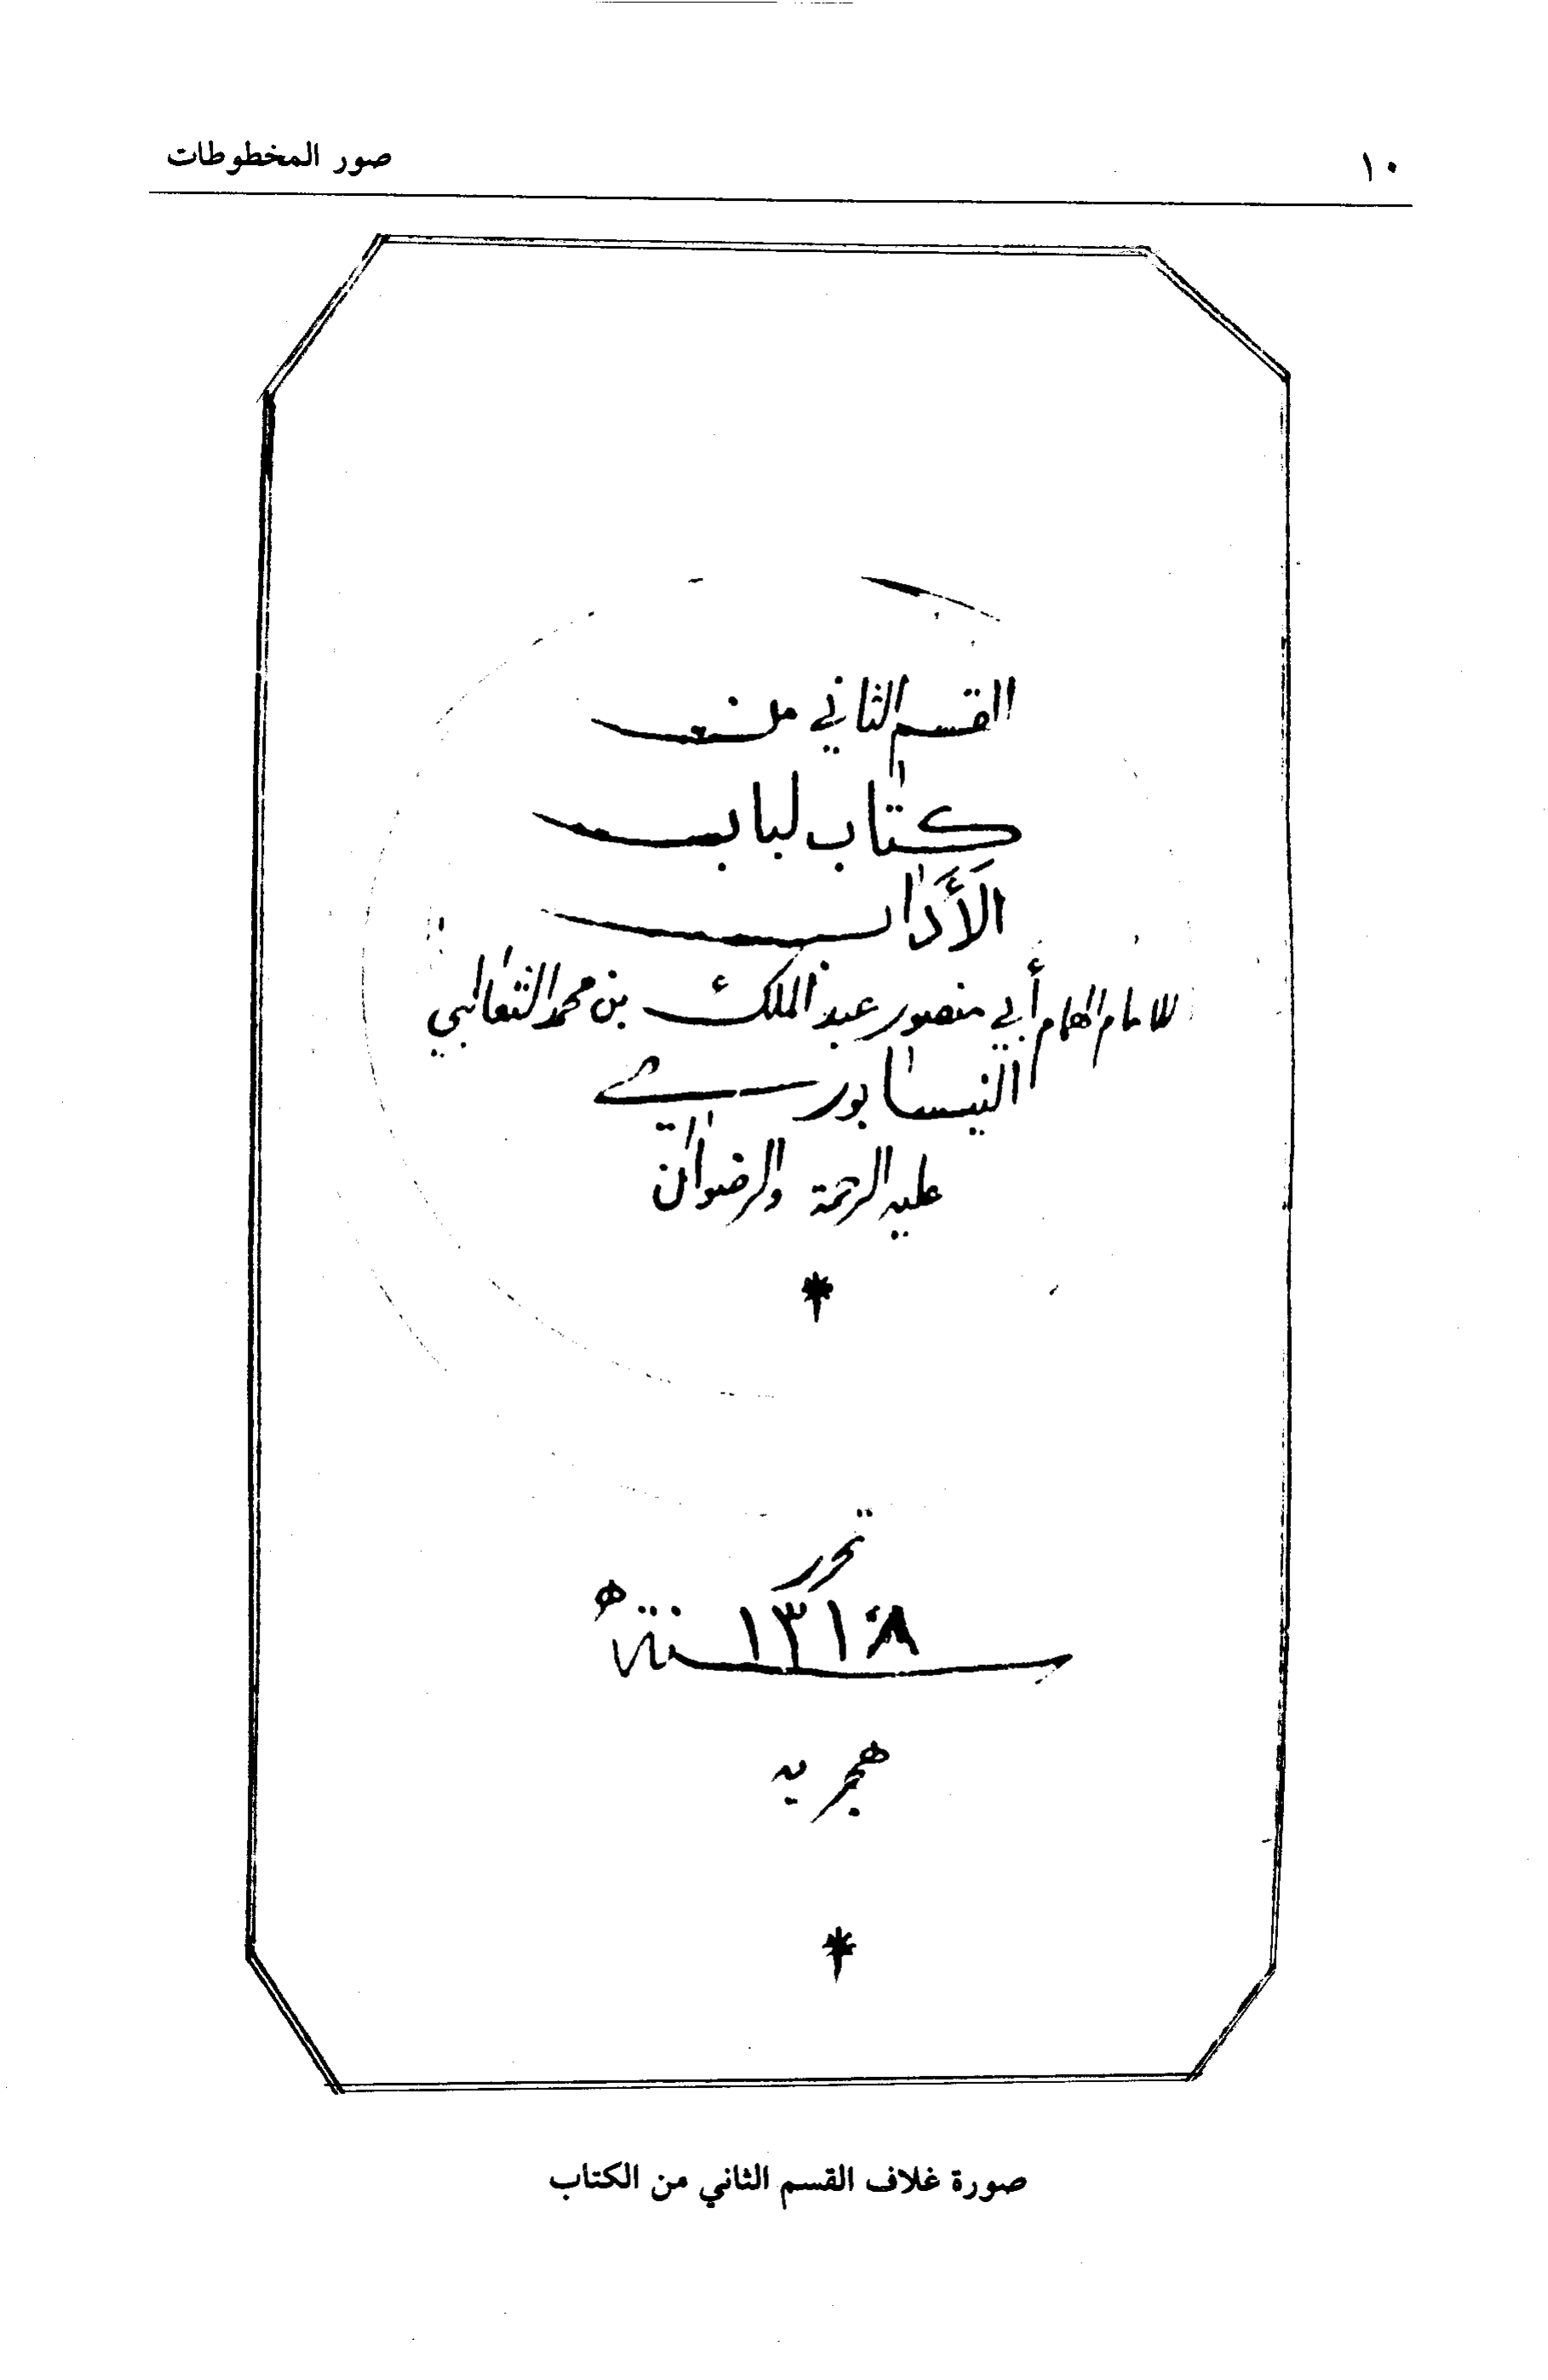 ١٠
صور المخطوطات
القسم الثاني من
كتاب لباب
الأداب
للامام الهمام أبي منصور عبد الملك بن محمد الثعالبي
النيسابوري
عليه الرحمة والرضوان
تحرر
١٣١٨ سنة ه
هجريه
صورة غلاف القسم الثاني من الكتاب